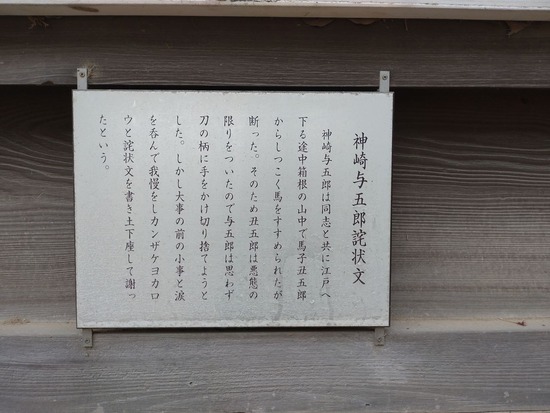 神崎与五郎詫状文
神崎与五郎は同志と共に江戸へ
下る途中箱根の山中で馬子丑五郎
からしつこく馬をすすめられたが
断った。そのため丑五郎は悪態の
限りをついたので与五郎は思わず
刀の柄に手をかけ切り捨てようと
した。しかし大事の前の小事と涙
を呑んで我慢をしカンザケヨカロ
ウと詫状文を書き土下座して謝っ
たという。